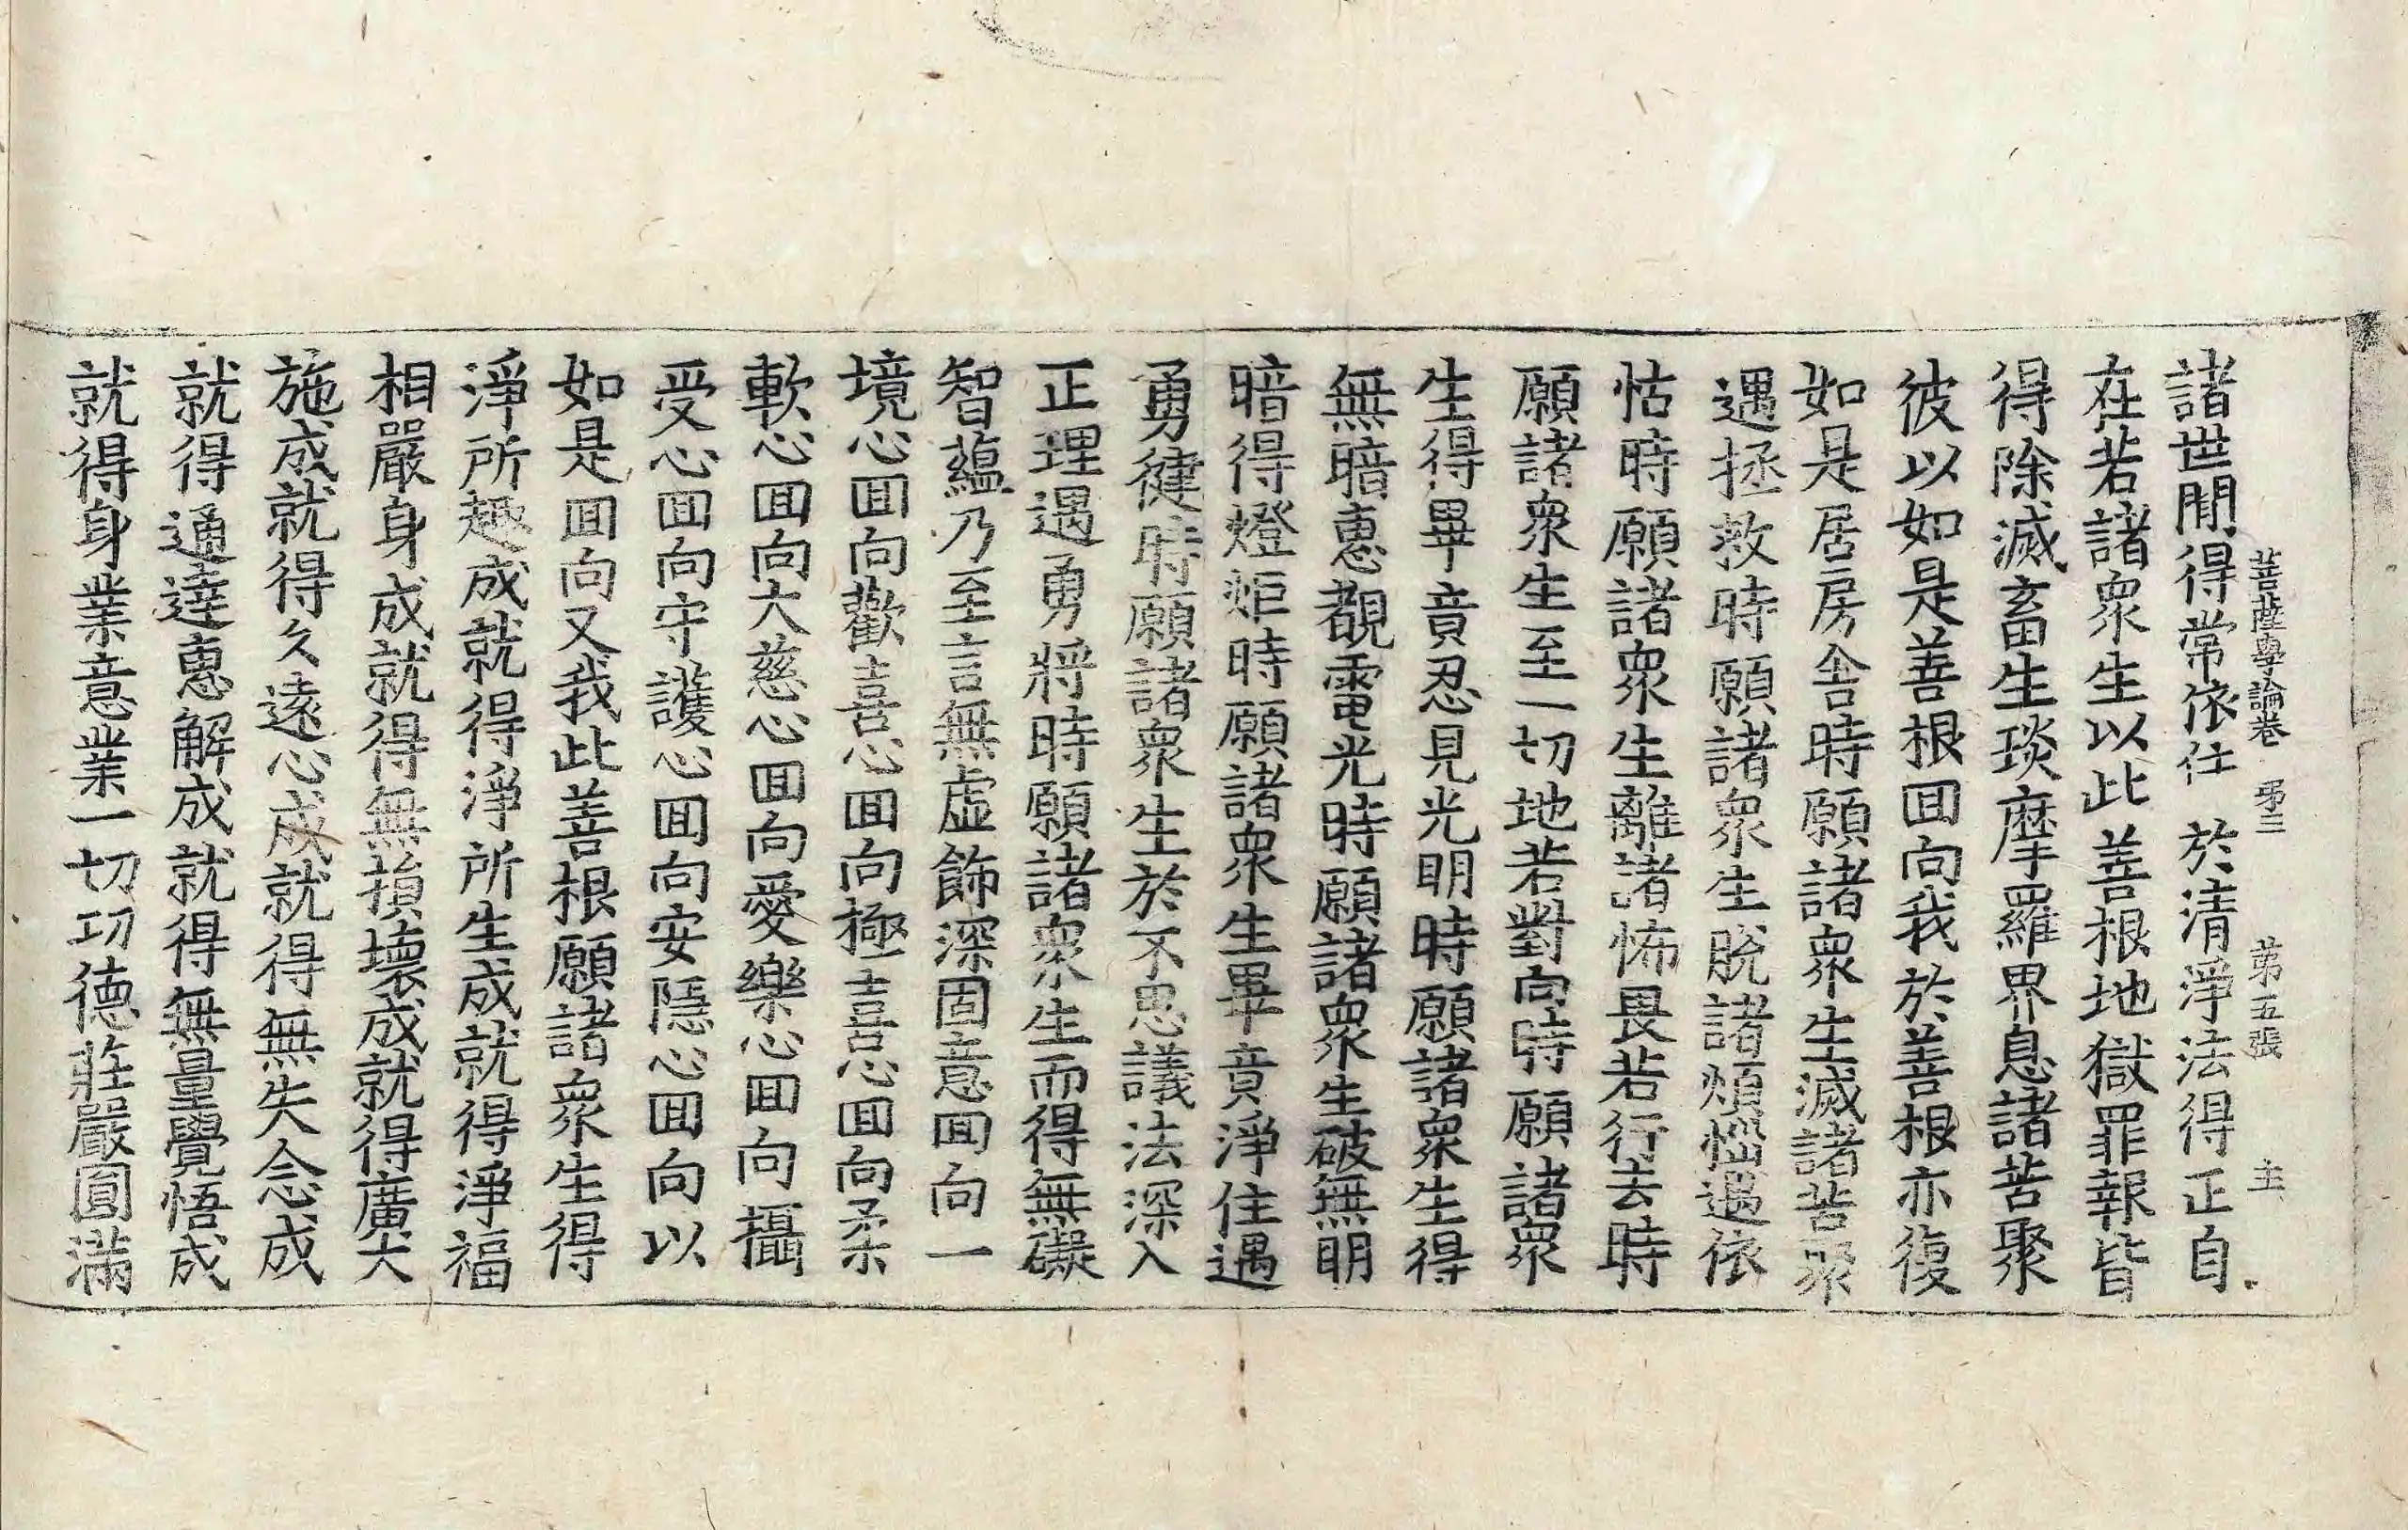 諸世間得常依住於清淨法得正自
菩薩學論卷 第二 第五張 主
在若諸衆生以此善根地獄罪報皆
得除滅畜生琰摩羅界息諸苦聚
彼以如是善根回向我於善根亦復
如是居房舍時願諸衆生滅諸苦聚
遇拯救時願諸衆生脫諸煩惱遇依
怙時願諸衆生離諸怖畏若行去時
願諸衆生至一切地若對向時願諸衆
生得畢竟忍見光明時願諸衆生得
無暗惠覩電光時願諸衆生破無明
暗得燈炬時願諸衆生畢竟淨住遇
勇健時願諸衆生於不思議法深入
正理遇勇將時願諸衆生而得無礙
智蘊乃至言無虛飾深固意回向一
境心回向歡喜心回向極喜心回向柔
軟心回向大慈心回向愛樂心回向攝
受心回向守護心回向安隱心回向以
如是回向又我此善根願諸衆生得
淨所趣成就得淨所生成就得淨福
相嚴身成就得無損壞成就得廣大
施成就得久遠心成就得無失念成
就得通達惠解成就得無量覺悟成
就得身業意業一切功德莊嚴圓滿